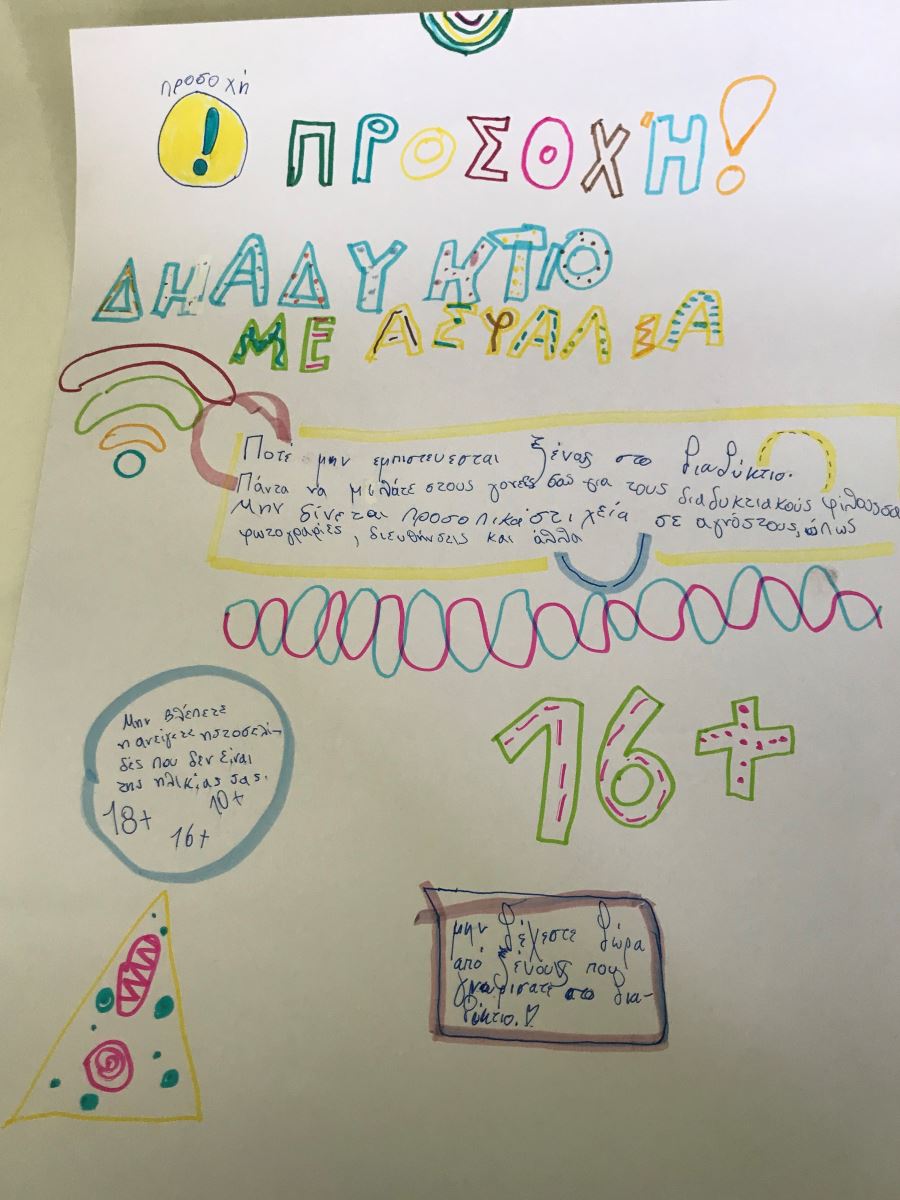 προσοχή
!
ΠΡΟΣΟΧΉ!
ΔΗΑΔΥΚΤΙΟ
ΜΕ ΑΣΦΑΛΣΑ
Ποτέ μην εμπιστευεσται ξένους στο διαδύκτιο.
Πάντα να μιλάτε στους γονείς σας για τους διαδυκτιακούς φίλους σα
Μην δίνεται προσοπικά στιχεία σε αγνόστους, όπως
φωτογραφίες, διευθήνσεις και άλλα
Μην βλέπετε
η ανείγετε ηστοσελί-
δες που δεν είναι
της ηλικίας σας.
18+ 10+
16+
16+
μην δέχεστε δώρα
από ξένους που
γναρισατε στο δια-
δύκτιο.♡